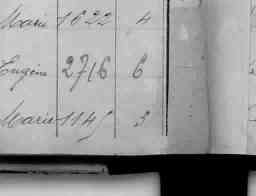 Marie 1622 4
Eugène 2716 6
Marie 1145 3